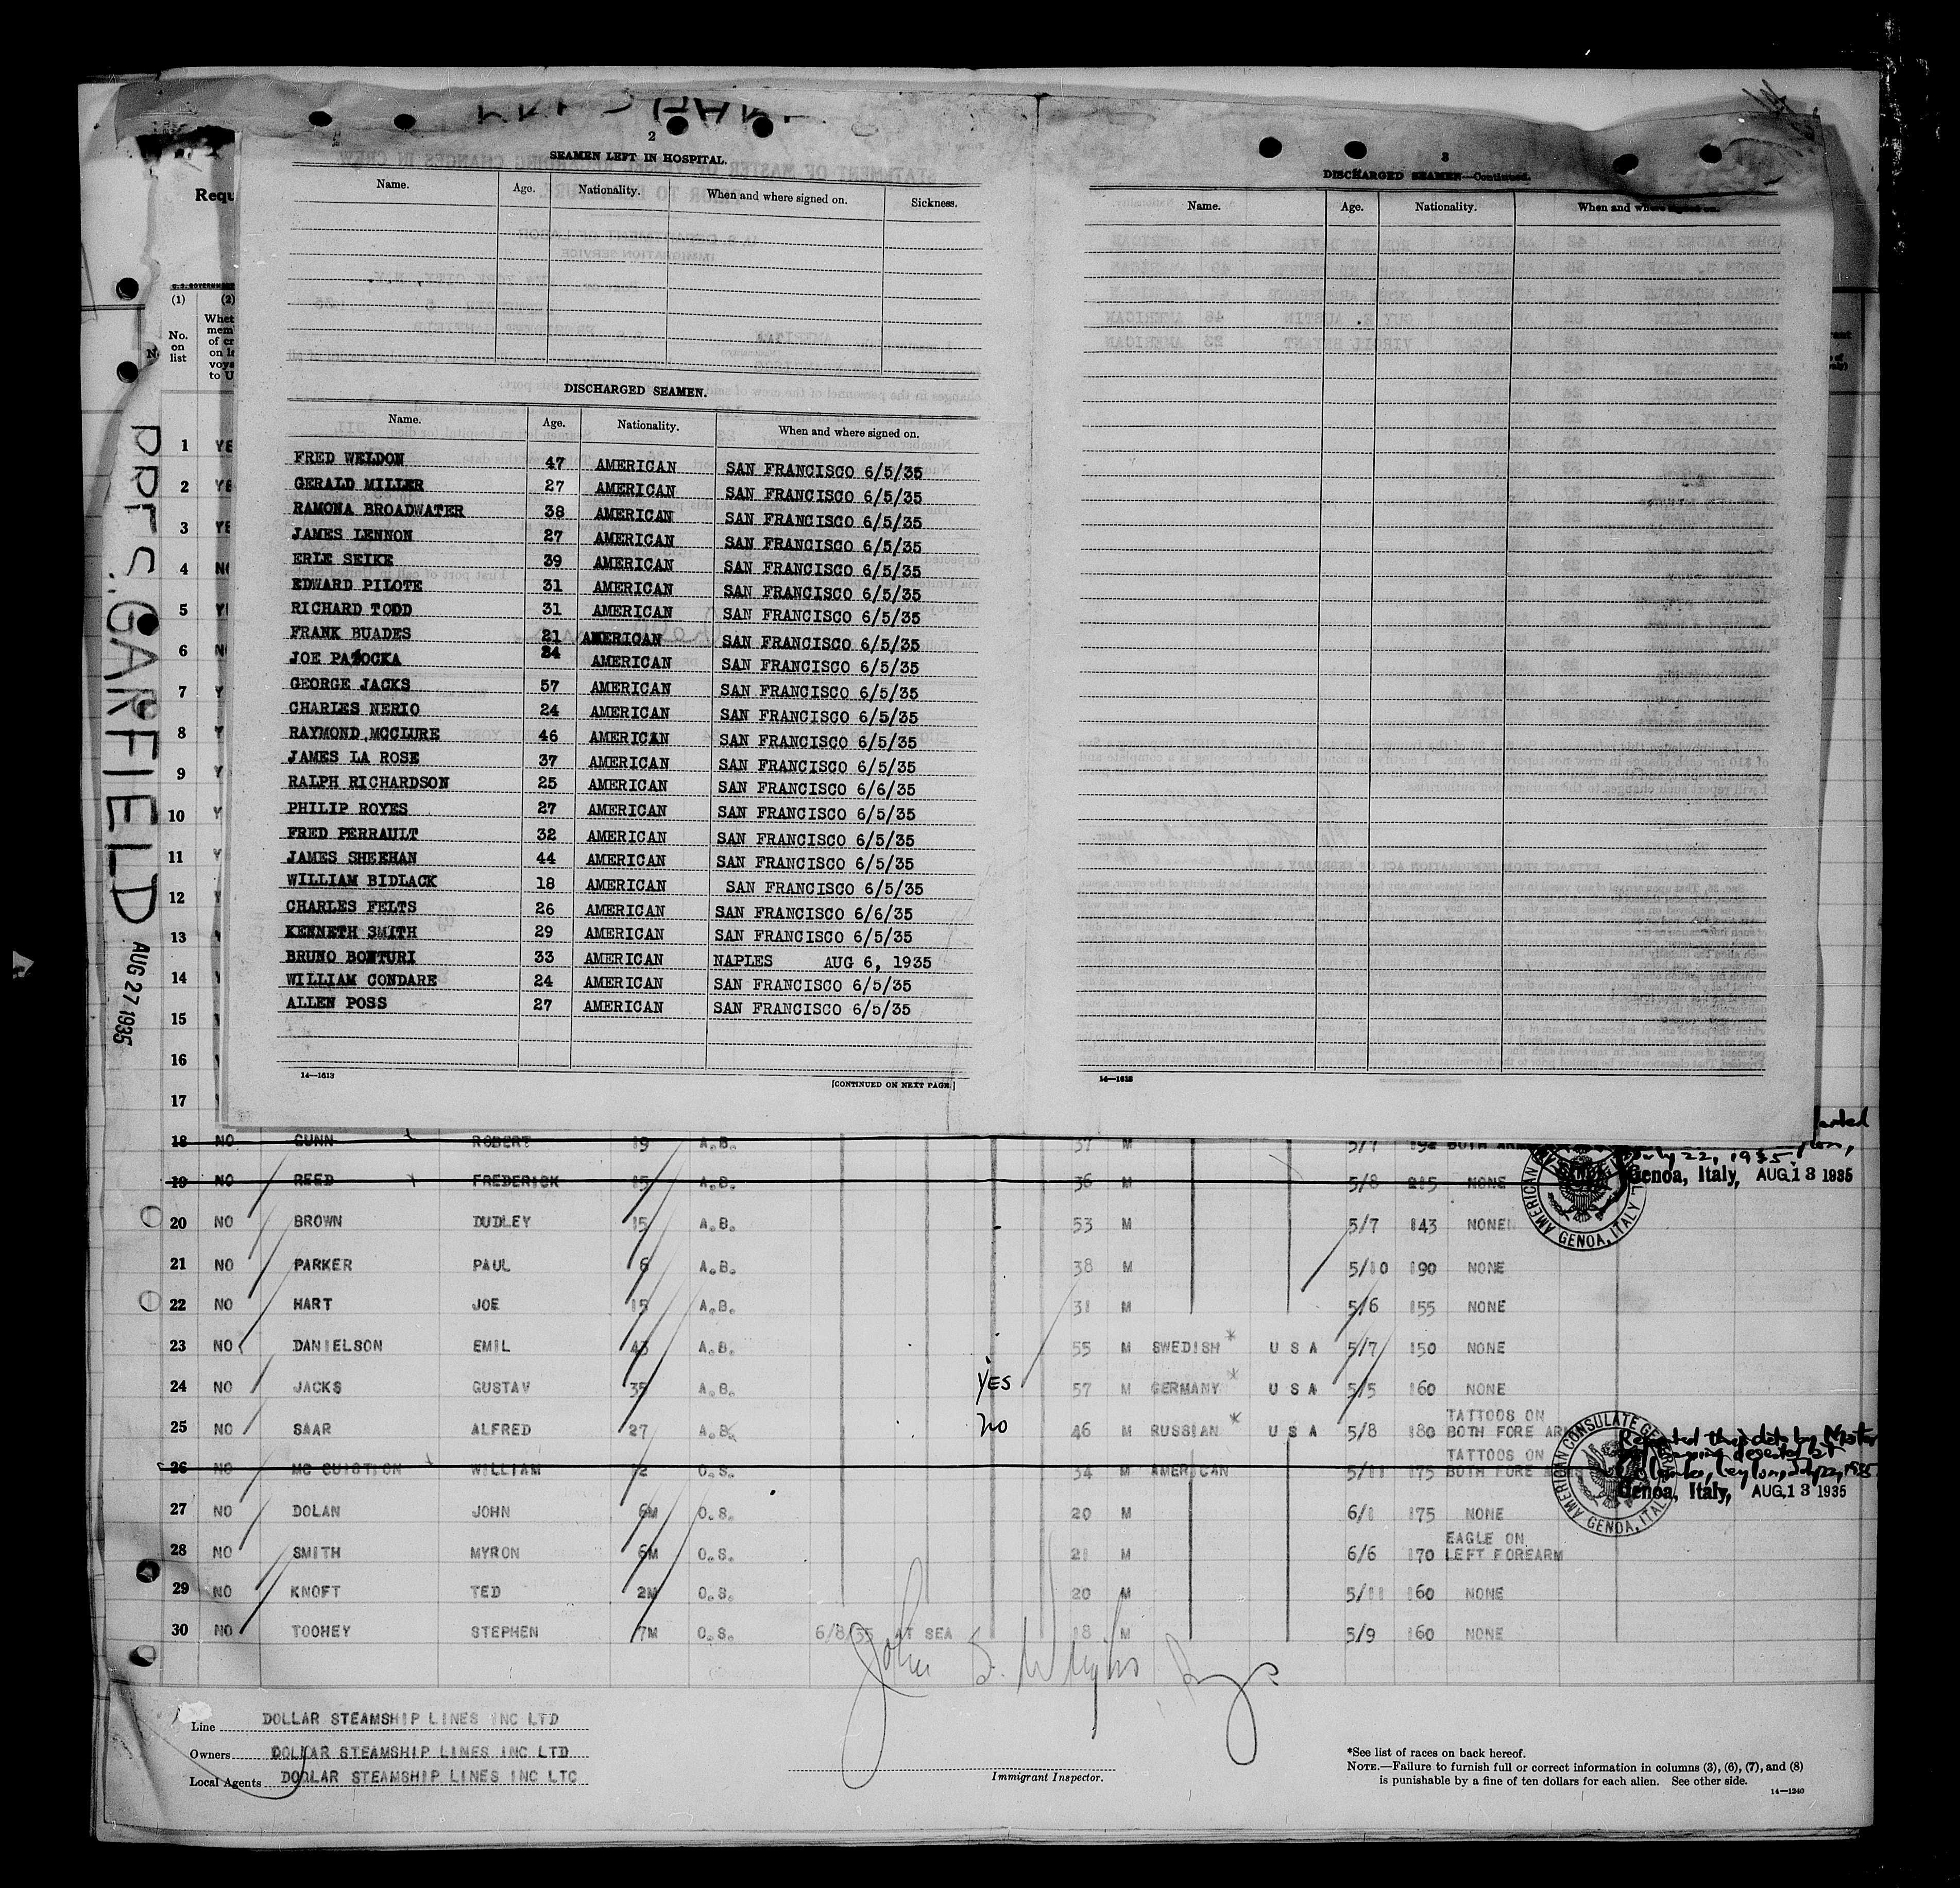 2
SEAMEN LEFT IN HOSPITAL.
Name. Age. Nationality. When and where signed on. Sickness.
DISCHARGED SEAMEN.
Name. Age. Nationality. When and where signed on.
FRED WELDON 47 AMERICAN SAN FRANCISCO 6/5/35
GERALD MILLER 27 AMERICAN SAN FRANCISCO 6/5/35
RAMONA BROADWATER 38 AMERICAN SAN FRANCISCO 6/5/35
JAMES LENNON 27 AMERICAN SAN FRANCISCO 6/5/35
ERLE SEIKE 39 AMERICAN SAN FRANCISCO 6/5/35
EDWARD PILOTE 31 AMERICAN SAN FRANCISCO 6/5/35
RICHARD TODD 31 AMERICAN SAN FRANCISCO 6/5/35
FRANK BUADES 21 AMERICAN SAN FRANCISCO 6/5/35
JOE PATOCKA 24 AMERICAN SAN FRANCISCO 6/5/35
GEORGE JACKS 57 AMERICAN SAN FRANCISCO 6/5/35
CHARLES NERIO 24 AMERICAN SAN FRANCISCO 6/5/35
RAYMOND MCCLURE 46 AMERICAN SAN FRANCISCO 6/5/35
JAMES LA ROSE 37 AMERICAN SAN FRANCISCO 6/5/35
RALPH RICHARDSON 25 AMERICAN SAN FRANCISCO 6/6/35
PHILIP ROYES 27 AMERICAN SAN FRANCISCO 6/5/35
FRED PERRAULT 32 AMERICAN SAN FRANCISCO 6/5/35
JAMES SHEEHAN 44 AMERICAN SAN FRANCISCO 6/5/35
WILLIAM BIDLACK 18 AMERICAN SAN FRANCISCO 6/5/35
CHARLES FELTS 26 AMERICAN SAN FRANCISCO 6/6/35
KENNETH SMITH 29 AMERICAN SAN FRANCISCO 6/5/35
BRUNO BONTURI 33 AMERICAN NAPLES AUG 6, 1935
WILLIAM CONDARE 24 AMERICAN SAN FRANCISCO 6/5/35
ALLEN POSS 27 AMERICAN SAN FRANCISCO 6/5/35
14—1613 [CONTINUED ON NEXT PAGE]
3
DISCHARGED SEAMEN—Continued.
Name. Age. Nationality. When and where signed on.
14—1613
PRES. GARFIELD AUG 27 1935
Requ
(1) (2)
No. on list
1 YE
2 YE
3 YE
4 NO
5 Y
6 N
7 Y
8 Y
9 Y
10 Y
11 Y
12
13
14
15
16
17
18 NO GUNN ROBERT 19 A.B. 37 M 5/7 192 BOTH ARM
July 22, 1935
19 NO REED FREDERICK 15 A.B. 36 M 5/8 215 NONE
Genoa, Italy, AUG 13 1935
AMERICAN GENOA, ITALY
20 NO BROWN DUDLEY 15 A.B. 53 M 5/7 143 NONE
21 NO PARKER PAUL 6 A.B. 38 M 5/10 190 NONE
22 NO HART JOE 15 A.B. 31 M 5/6 155 NONE
23 NO DANIELSON EMIL 43 A.B. 55 M SWEDISH* U S A 5/7 150 NONE
24 NO JACKS GUSTAV 35 A.B. YES 57 M GERMANY* U S A 5/5 160 NONE
25 NO SAAR ALFRED 27 A.B. no 46 M RUSSIAN* U S A 5/8 180 TATTOOS ON BOTH FORE ARMS
26 NO MC CUISTION WILLIAM 12 O.S. 34 M AMERICAN 5/11 175 TATTOOS ON BOTH FORE ARMS
AMERICAN CONSULATE GENERAL GENOA, ITALY
Reported this date by Master
Genoa, Italy, AUG 13 1935
27 NO DOLAN JOHN 6M O.S. 20 M 6/1 175 NONE
28 NO SMITH MYRON 6M O.S. 21 M 6/6 170 EAGLE ON LEFT FOREARM
29 NO KNOFT TED 2M O.S. 20 M 5/11 160 NONE
30 NO TOOHEY STEPHEN 7M O.S. 6/8/35 AT SEA 18 M 5/9 160 NONE
Line DOLLAR STEAMSHIP LINES INC LTD
Owners DOLLAR STEAMSHIP LINES INC LTD
Local Agents DOLLAR STEAMSHIP LINES INC LTC
Immigrant Inspector.
*See list of races on back hereof.
NOTE.—Failure to furnish full or correct information in columns (3), (6), (7), and (8)
is punishable by a fine of ten dollars for each alien. See other side.
14—1240